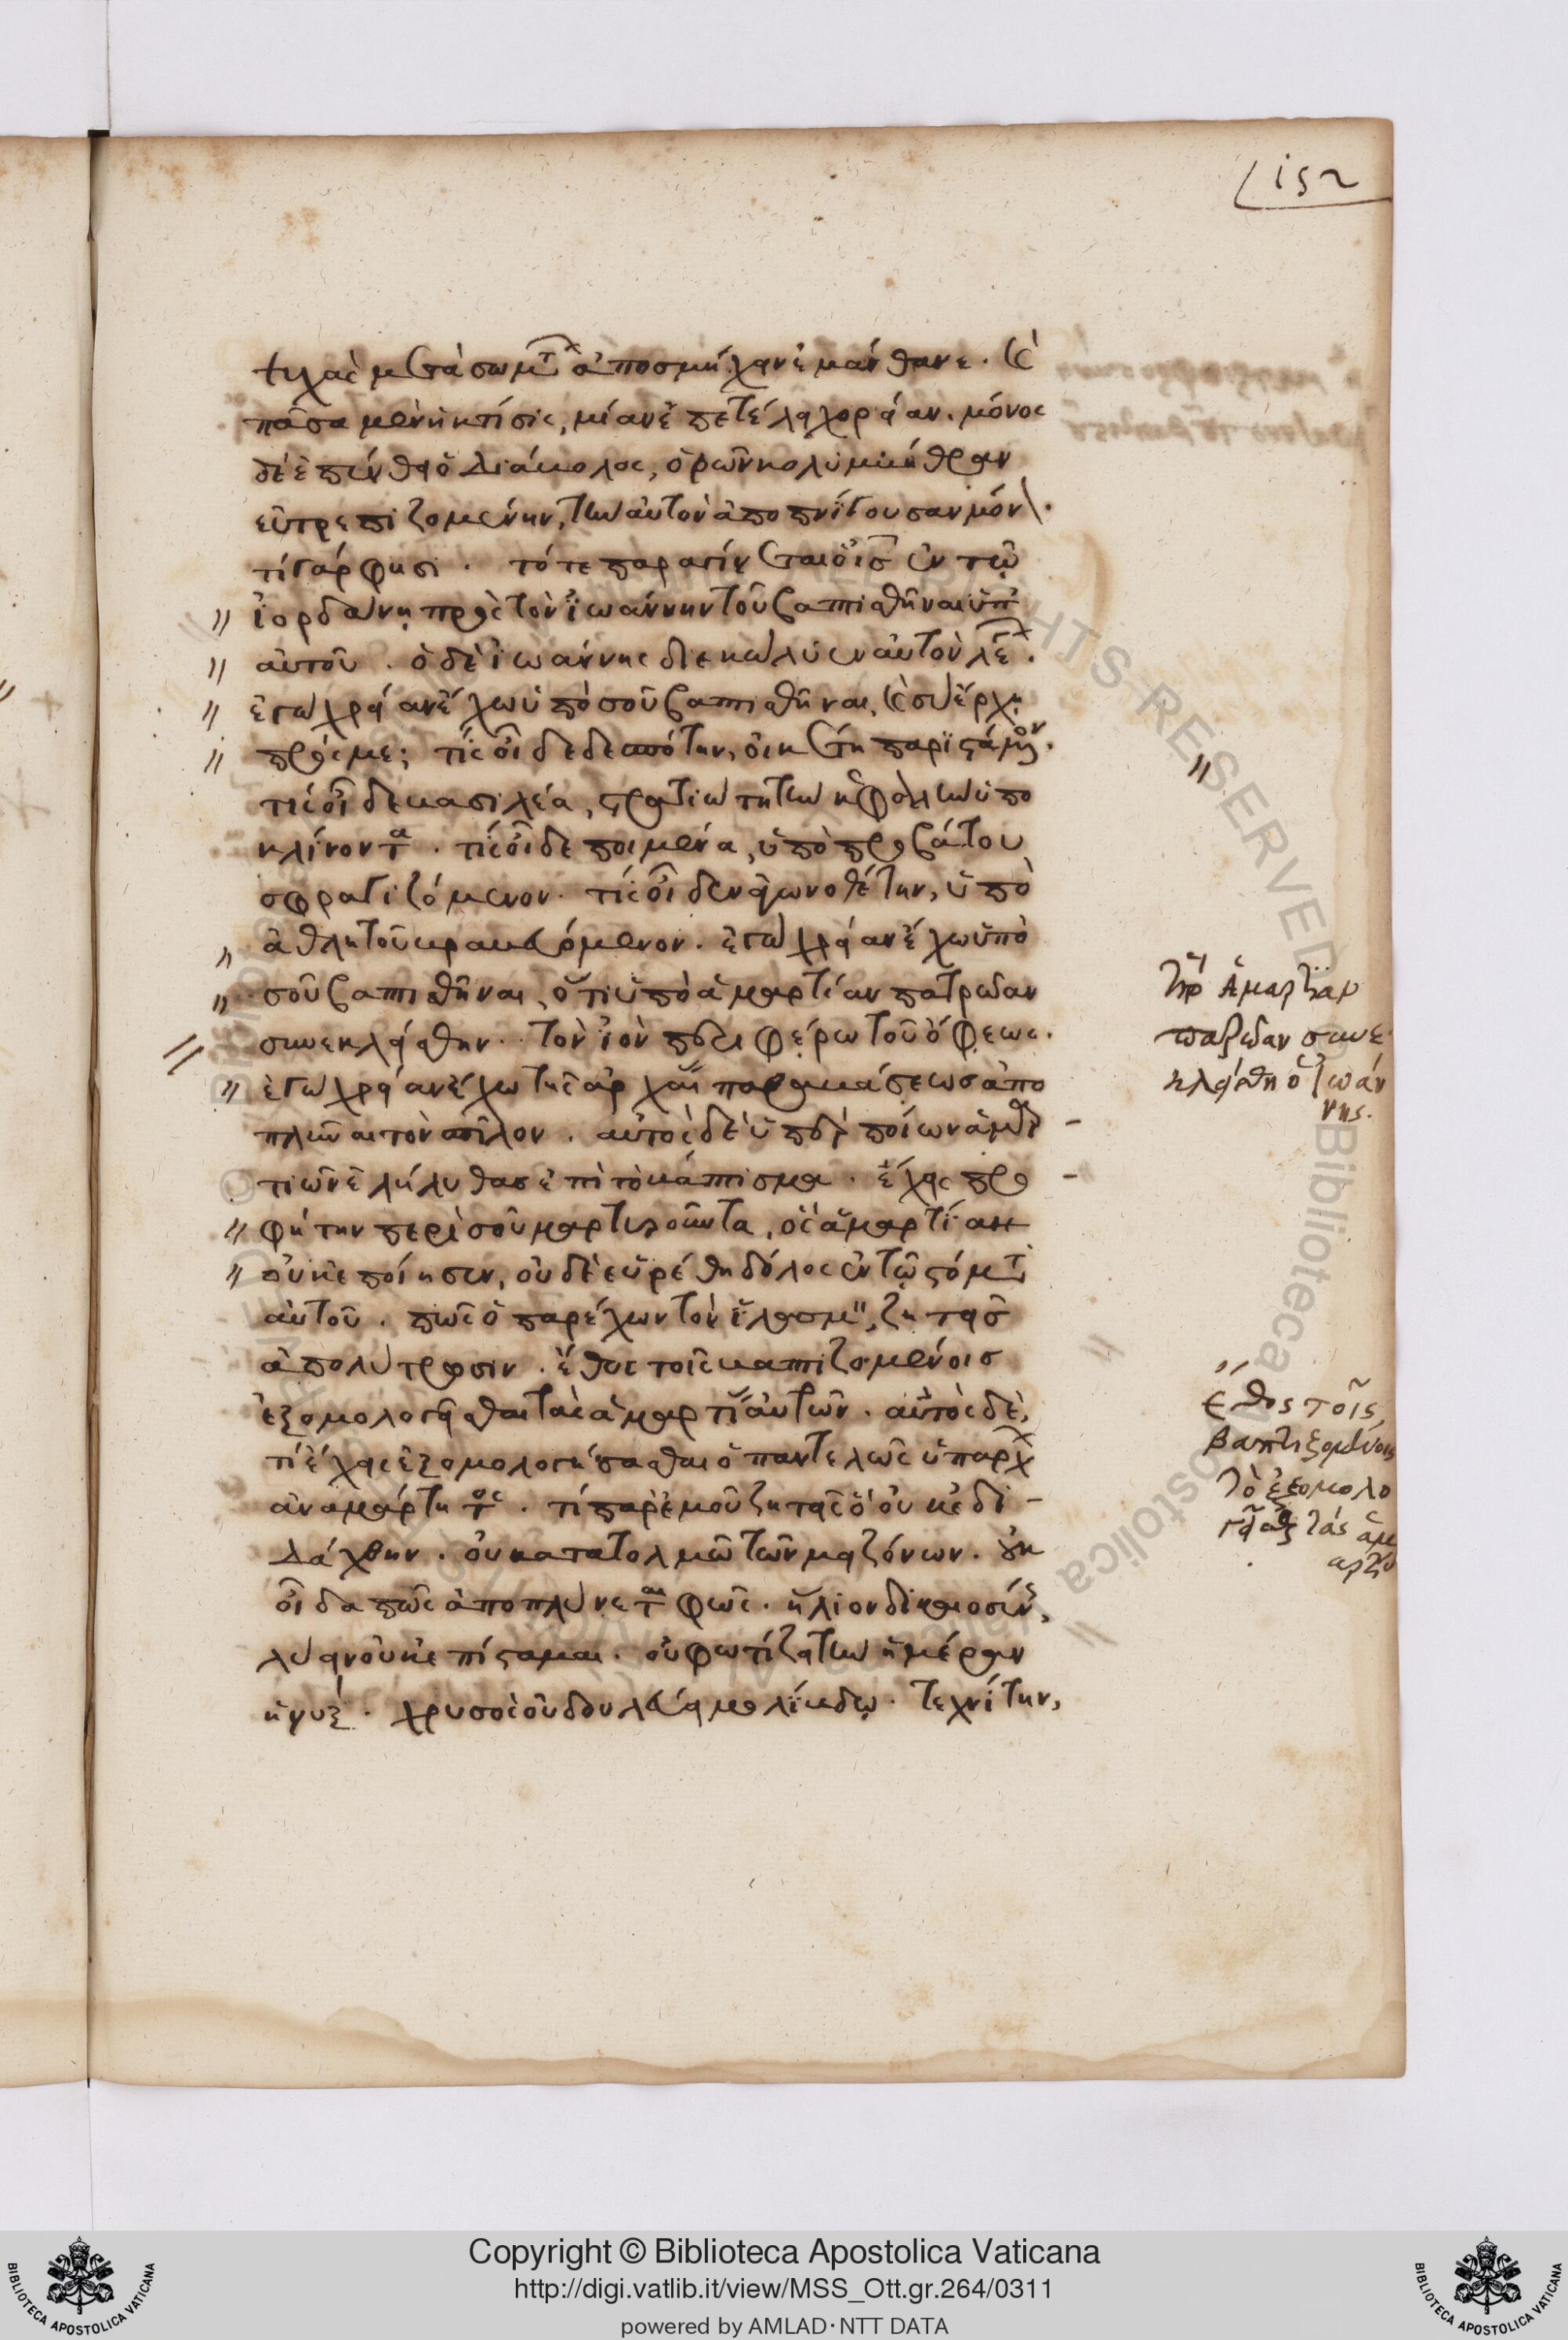 152
ψυχὰς μετὰ σωμάτων ἀποσμήχειν ἐμάνθανε. καὶ
πᾶσα μὲν ἡ κτίσις, μίαν ἐπετέλει χορείαν. μόνος
δὲ ἐπένθει ὁ διάβολος, ὁρῶν κολυμβήθραν
εὐτρεπιζομένην, τὴν αὐτὸν ἀποπνίγουσαν μόνον.
τί γάρ φησι. τότε παραγίνεται ὁ ἰς ἐν τῷ
ἰορδάνῃ πρὸς τὸν ἰωάννην τοῦ βαπτισθῆναι ὑπ
αὐτοῦ. ὁ δὲ ἰωάννης διεκώλυεν αὐτὸν λέγων.
ἐγὼ χρείαν ἔχω ὑπὸ σοῦ βαπτισθῆναι, καὶ σὺ ἔρχῃ
πρός με; τίς οἶδε δεσπότην, οἰκέτῃ παριστάμενον.
τίς οἶδε βασιλέα, στρατιώτῃ τὴν κεφαλὴν ὑπο
κλίνοντα. τίς οἶδε ποιμένα, ὑπὸ προβάτου
σφραγιζόμενον. τίς οἶδεν ἀγωνοθέτην, ὑπὸ
ἀθλητοῦ βραβευόμενον. ἐγὼ χρείαν ἔχω ὑπὸ
σοῦ βαπτισθῆναι, ὅτι ὑπὸ ἁμαρτίαν πατρώαν
συνεκλείσθην. τὸν ἰὸν περιφέρω τοῦ ὄφεως.
ἐγὼ χρείαν ἔχω τῆς ἀρχαίας παραβάσεως ἀπο
πλῦναι τὸν σπῖλον. αὐτὸς δὲ ὑπὲρ ποίων ἁμαρ
τιῶν ἐλήλυθας ἐπὶ τὸ βάπτισμα. ἔχεις προ
φήτην περὶ σοῦ μαρτυροῦντα, ὃς ἁμαρτίαν
οὐκ ἐποίησεν, οὐδὲ εὑρέθη δόλος ἐν τῷ στόματι
αὐτοῦ. πῶς ὁ παρέχων τὸν ἱλασμὸν, ζητεῖς
ἀπολύτρωσιν. ἔθος τοῖς βαπτιζομένοις
ἐξομολογεῖσθαι τὰς ἁμαρτίας αὐτῶν. αὐτὸς δὲ,
τί ἔχεις ἐξομολογήσασθαι ὁ παντελῶς ὑπάρχων
ἀναμάρτητος. τί παρ ἐμοῦ ζητεῖς ὃ οὐκ ἐδι
δάχθην. οὐ κατατολμῶ τῶν μειζόνων. οὐκ
οἶδα πῶς ἀποπλύνεται φῶς. ἥλιον δικαιοσύνης,
λύειν οὐκ ἐπίσταμαι. οὐ φωτίζει τὴν ἡμέραν
ἡ νύξ. χρυσὸς οὐ δουλεύει μολίβδῳ. τεχνίτην,
ὑπὸ ἁμαρτίαν
πατρώαν συνε
κλείσθη ὁ Ἰωάν
νης.
ἔθος τοῖς
βαπτιζομένοις
τὸ ἐξομολο
γεῖσθαι τὰς ἁμ
αρτί
Copyright © Biblioteca Apostolica Vaticana
http://digi.vatlib.it/view/MSS_Ott.gr.264/0311
powered by AMLAD·NTT DATA
BIBLIOTECA APOSTOLICA VATICANA
BIBLIOTECA APOSTOLICA VATICANA